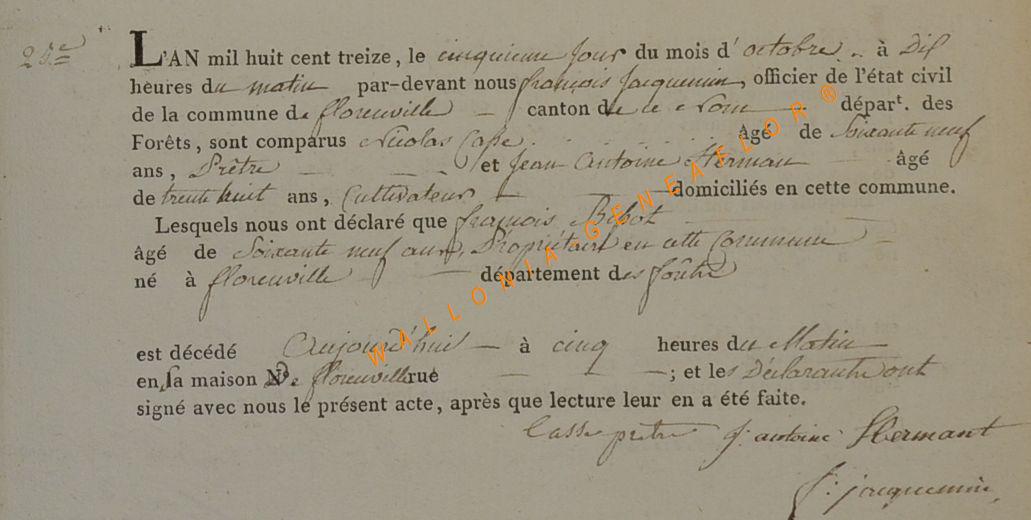 25e
L'AN mil huit cent treize, le cinquieme jour du mois d'octobre à Dix
heures du matin par-devant nous françois Jacquemin, officier de l'état civil
de la commune de florenville canton de ce Nom départ. des
Forêts, sont comparus Nicolas Casse âgé de Soixante neuf
ans, Prêtre et Jean Antoine Herman âgé
de trente huit ans, Cultivateur domiciliés en cette commune.
Lesquels nous ont déclaré que françois Bibot
âgé de Soixante neuf ans, Propriétaire en cette Commune
né à florenville département des forêts
est décédé Aujourd'huis à cinq heures du Matin
en sa maison N° florenville rue ; et les Déclarants ont
signé avec nous le présent acte, après que lecture leur en a été faite.
Casse pretre J: antoine Hermant
f: jacquemin
WALLONIA-GENEAFLOR®